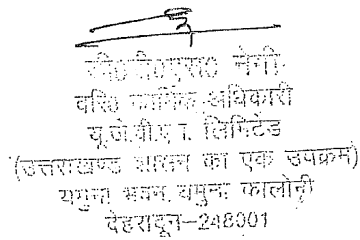 नेगी
वरि0 कार्मिक अधिकारी
यू.जे.वी.ए लिमिटेड
(उत्तराखण्ड शासन का एक उपक्रम)
यमुना भवन, यमुना कालोनी
देहरादून-248001